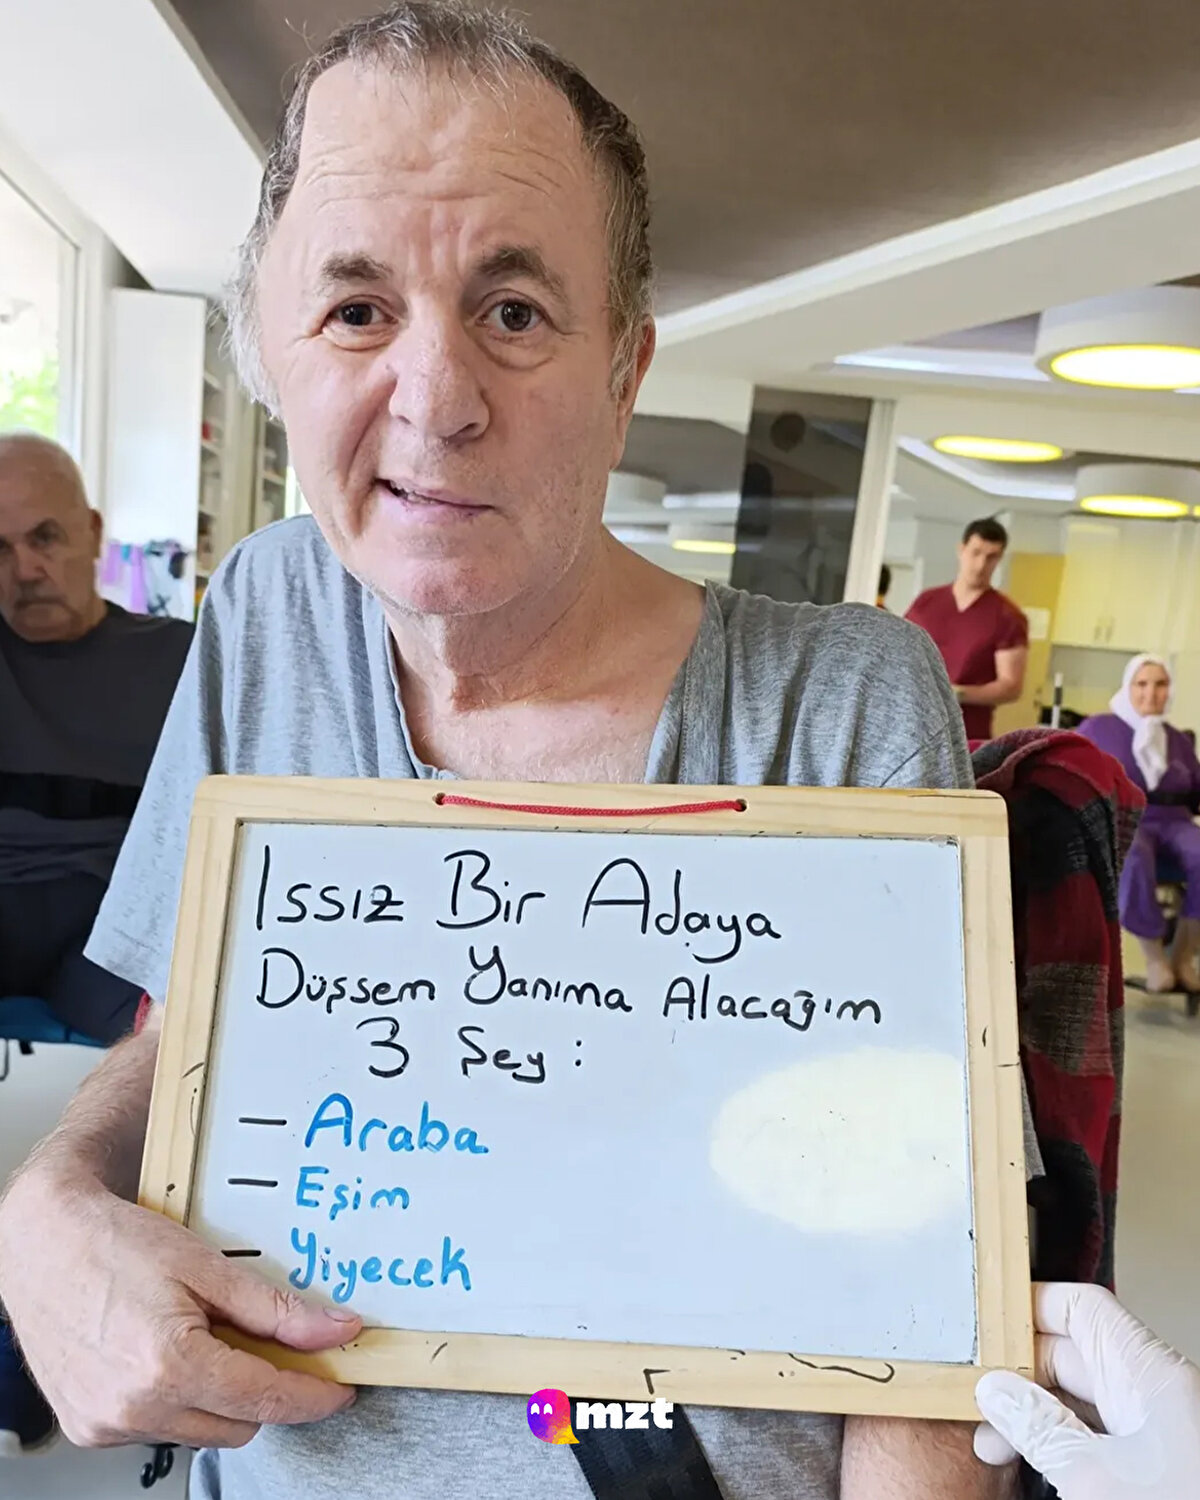 Issız Bir Adaya
Düşsem Yanıma Alacağım
3 Şey :
- Araba
- Eşim
- Yiyecek
mzt